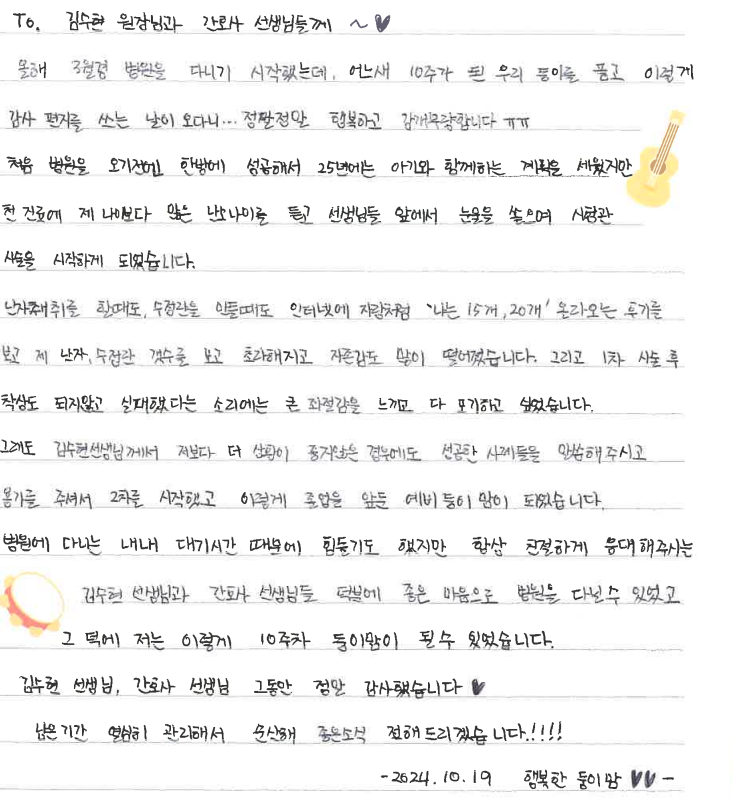 To. 김수현 원장님과 간호사 선생님들께 ~♥
올해 3월경 병원을 다니기 시작했는데, 어느새 10주가 된 우리 둥이를 품고 이렇게
감사 편지를 쓰는 날이 오다니... 정말정말 행복하고 감개무량합니다 ㅠㅠ
처음 병원을 오기전에 한방에 성공해서 25년에는 아기와 함께하는 계획을 세웠지만
첫 진료에 제 나이보다 많은 난소나이를 듣고 선생님들 앞에서 눈물을 쏟으며 시험관
시술을 시작하게 되었습니다.
난자채취를 할때도, 수정란을 만들때도 인터넷에 자랑처럼 '나는 15개, 20개' 올라오는 후기를
보고 제 난자, 수정란 갯수를 보고 초라해지고 자존감도 많이 떨어졌습니다. 그리고 1차 시술 후
착상도 되지않고 실패했다는 소리에는 큰 좌절감을 느끼고 다 포기하고 싶었습니다.
그래도 김수현선생님께서 저보다 더 상황이 좋지않은 경우에도 성공한 사례들을 말씀해주시고
용기를 주셔서 2차를 시작했고 이렇게 졸업을 앞둔 예비 둥이맘이 되었습니다.
병원에 다니는 내내 대기시간 때문에 힘들기도 했지만 항상 친절하게 응대해주시는
김수현 선생님과 간호사 선생님들 덕분에 좋은 마음으로 병원을 다닐수 있었고
그 덕에 저는 이렇게 10주차 둥이맘이 될수 있었습니다.
김수현 선생님, 간호사 선생님 그동안 정말 감사했습니다 ♥
남은기간 열심히 관리해서 순산해 좋은소식 전해드리겠습니다.!!!!
-2024.10.19 행복한 둥이맘 ♥♥ -